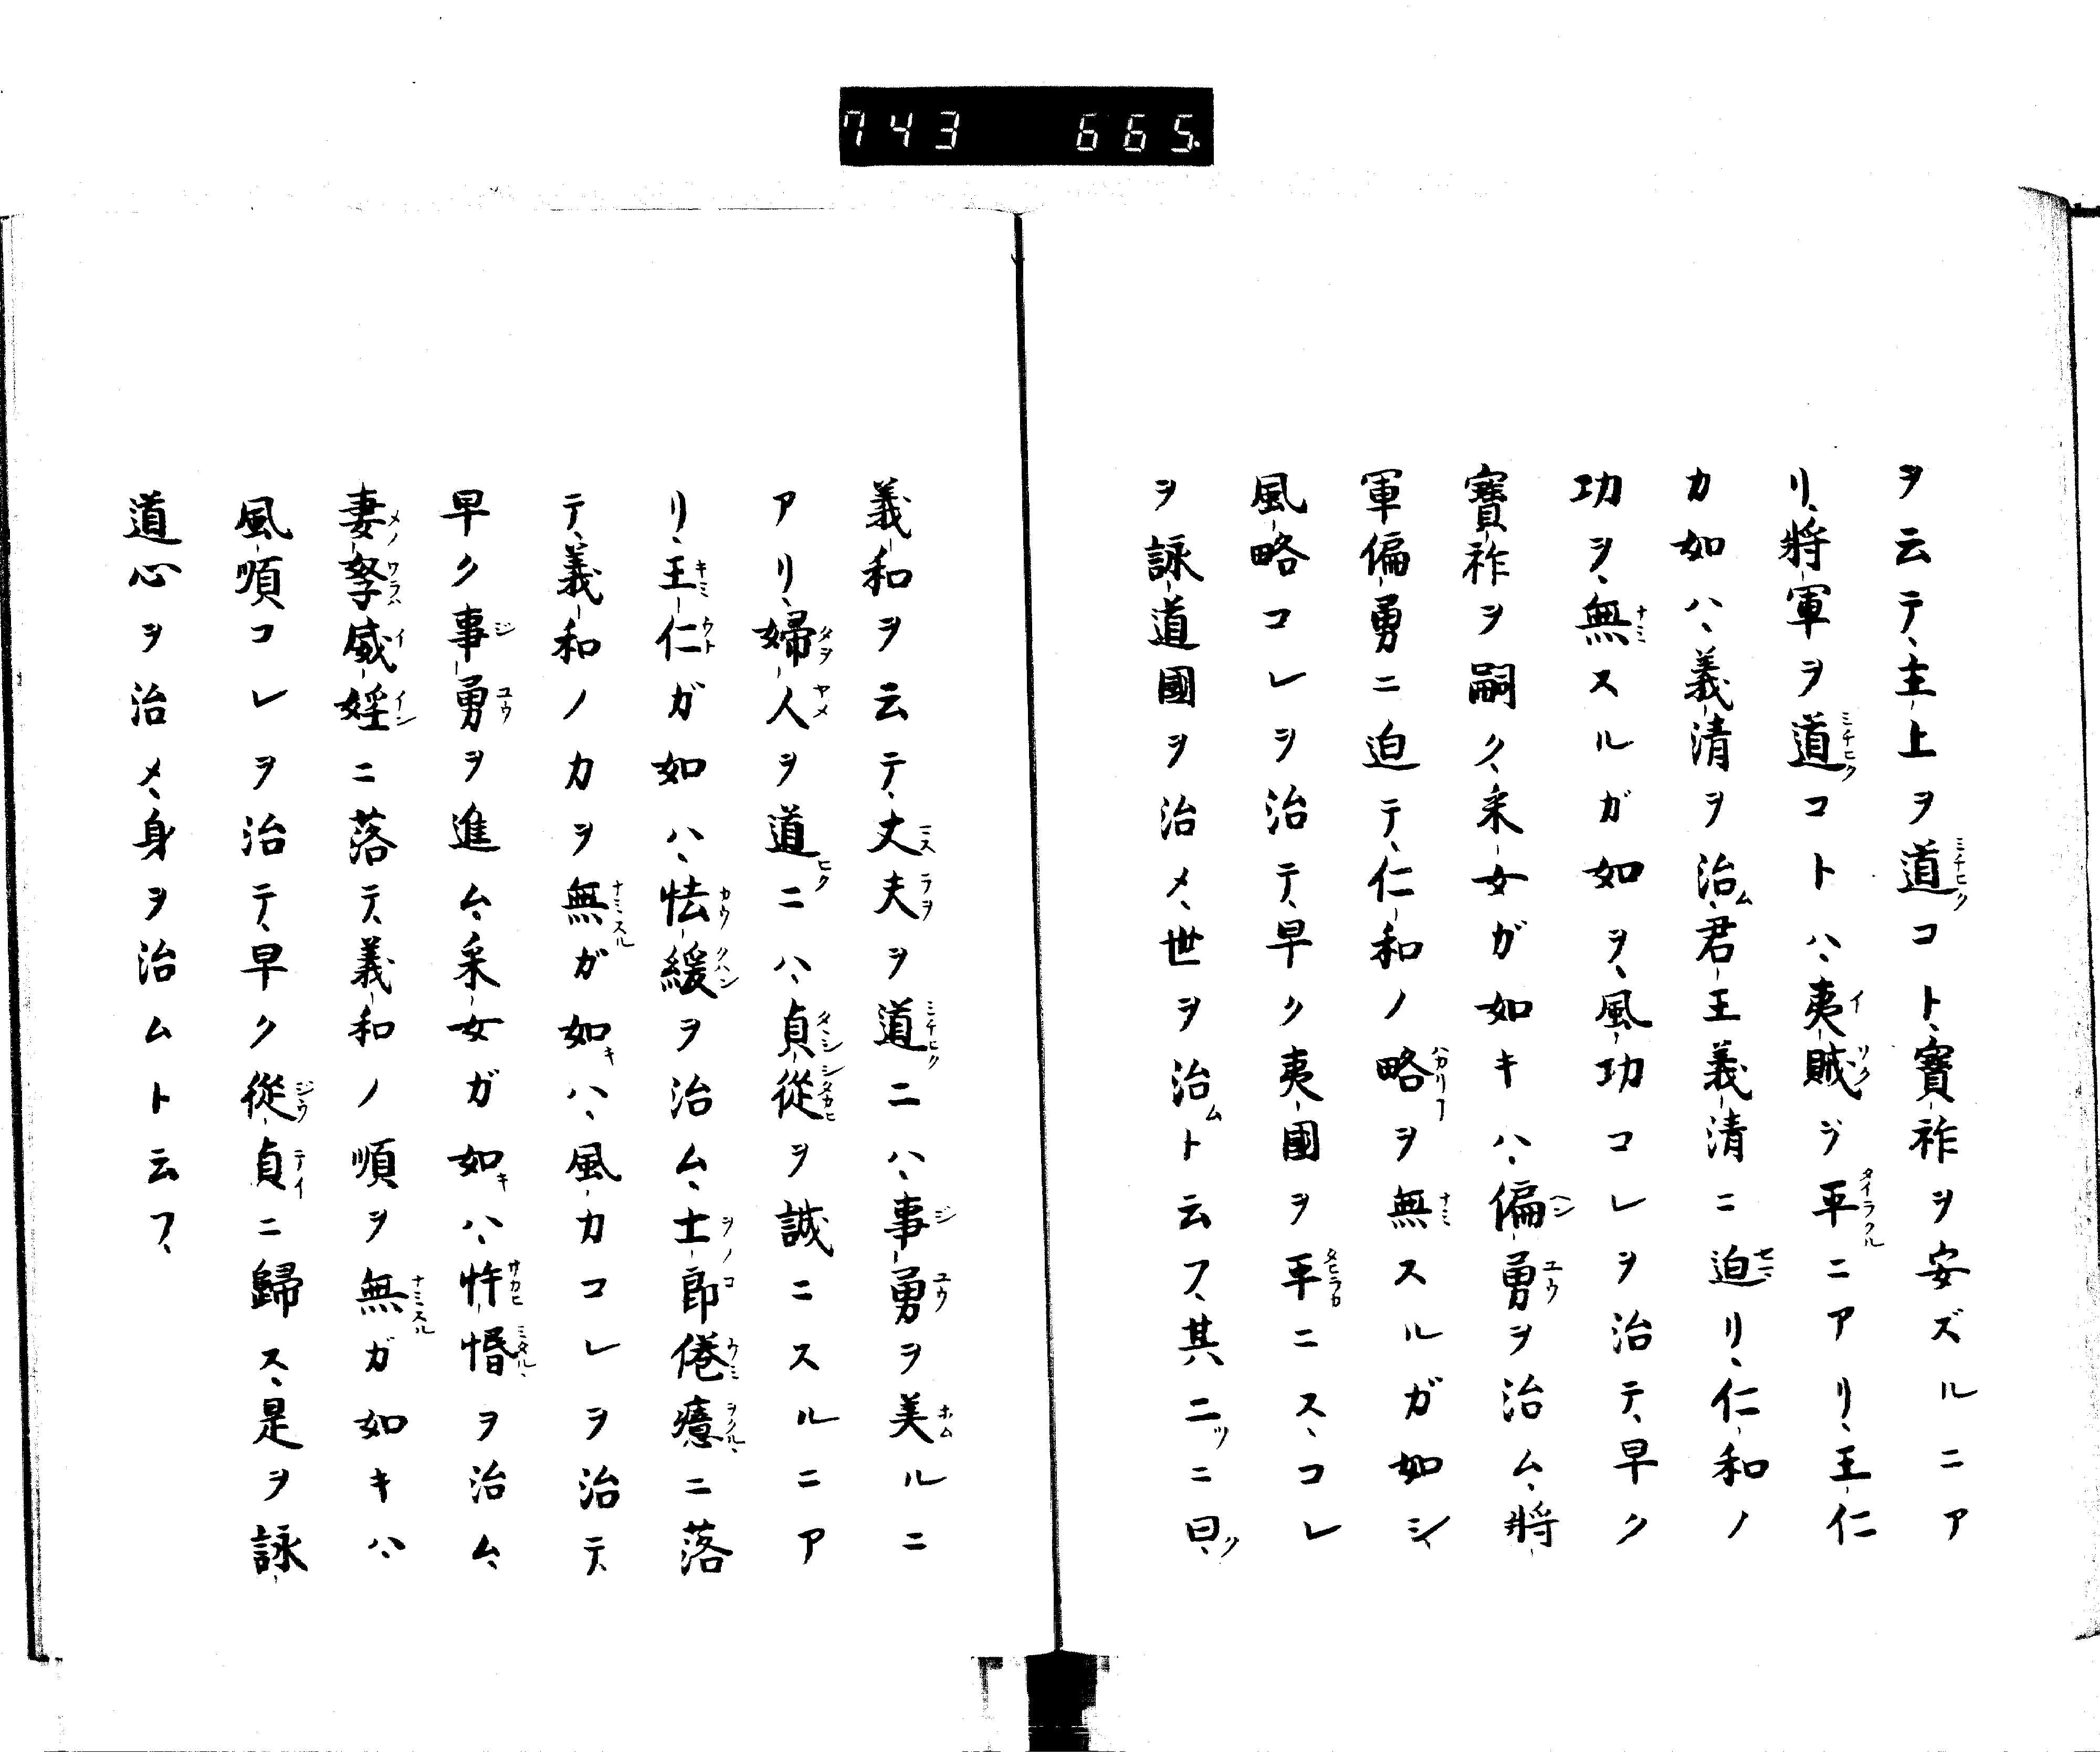 743 665.
ヲ云テ、主上ヲ道コト、寳祚ヲ安ズルニア
リ、將軍ヲ道コトハ、夷賊ヲ平ニアリ、王仁
カ如ハ、義清ヲ治ム、君王義清ニ迫リ、仁和ノ
功ヲ、無スルガ如ヲ、風功コレヲ治テ、早ク
寳祚ヲ嗣ク、釆女ガ如キハ、偏勇ヲ治ム、將
軍偏勇ニ迫テ、仁和ノ略ヲ無スルガ如シ、
風略コレヲ治テ、早ク夷國ヲ平ニス、コレ
ヲ詠道國ヲ治メ、世ヲ治ムト云フ、其二ツニ曰ク、
義和ヲ云テ、丈夫ヲ道ニハ、事勇ヲ美ルニ
アリ、婦人ヲ道ニハ、貞從ヲ誠ニスルニア
リ、王仁ガ如ハ、怯緩ヲ治ム、士郎倦癔ニ落
テ、義和ノカヲ無ガ如キハ、風カコレヲ治テ、
早ク事勇ヲ進ム、釆女ガ如キハ、忤惛ヲ治ム、
妻孥威婬ニ落テ、義和ノ順ヲ無ガ如キハ、
風順コレヲ治テ、早ク從貞ニ歸ス、是ヲ詠
道心ヲ治メ、身ヲ治ムト云フ、